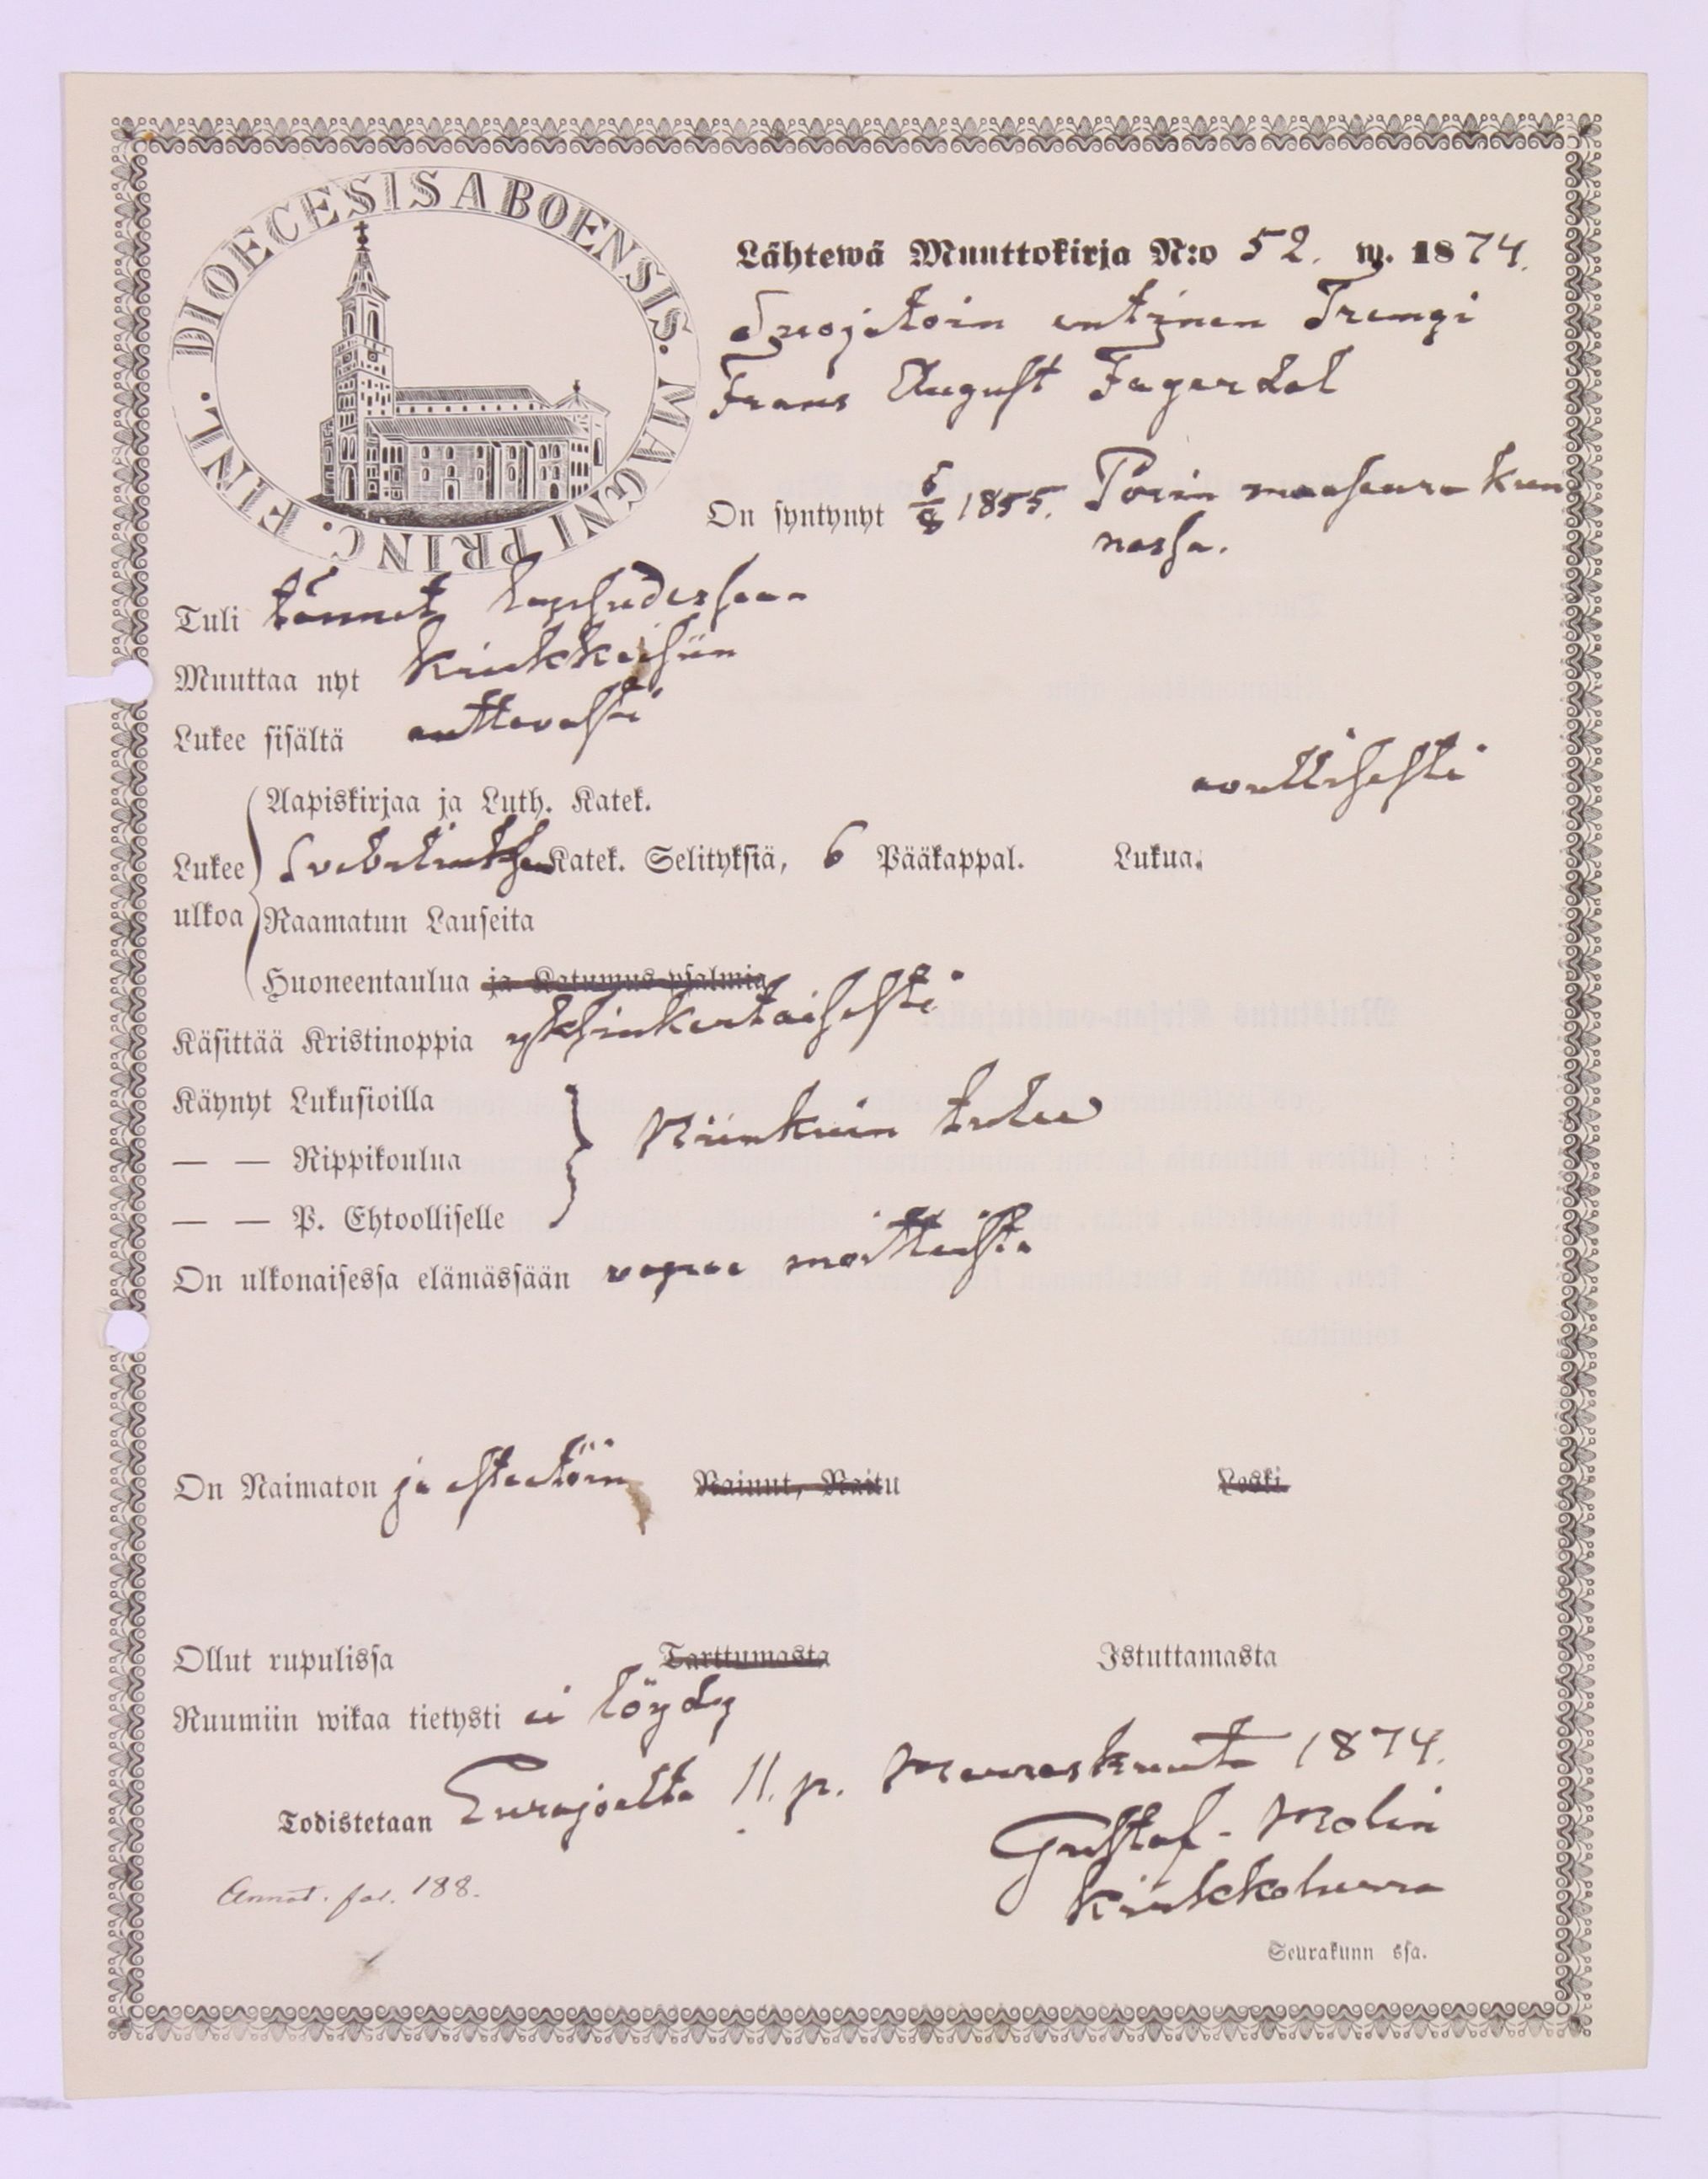 DIOECESIS ABOENSIS. MAGNI PRINC. FINL.
Lähtewä Muuttokirja N:o 52. w. 1874.
Suojatoin entinen Trengi
Frans August Fagerdal
On syntynyt 6/8 1855. Porin maaseurakun
nassa.
Tuli tänne lapsudessaan
Muuttaa nyt Kiukkaisiin
Lukee sisältä auttavasti
Aapiskirjaa ja Luth. Katek. auttisesti
Lukee Svebeliuksen Katek. Selityksiä, 6 Pääkappal. Lukua.
ulkoa Raamatun Lauseita
Huoneentaulua ja Katumus-psalmia
Käsittää Kristinoppia yksinkertaisesti
Käynyt Lukusioilla
— — Rippikoulua Niinkuin tulee
— — P. Ehtoolliselle
On ulkonaisessa elämässään vapaa moitteista
On Naimaton ja esteetöin Nainut, Naitu Leski.
Ollut rupulissa Tarttumasta Istuttamasta
Ruumiin wikaa tietysti ei löydy
Todistetaan Eurajoelta 11. p. Marraskuuta 1874.
Gustaf Molin
Kirkkoherra
Annot. fol. 188.
Seurakunn ssa.